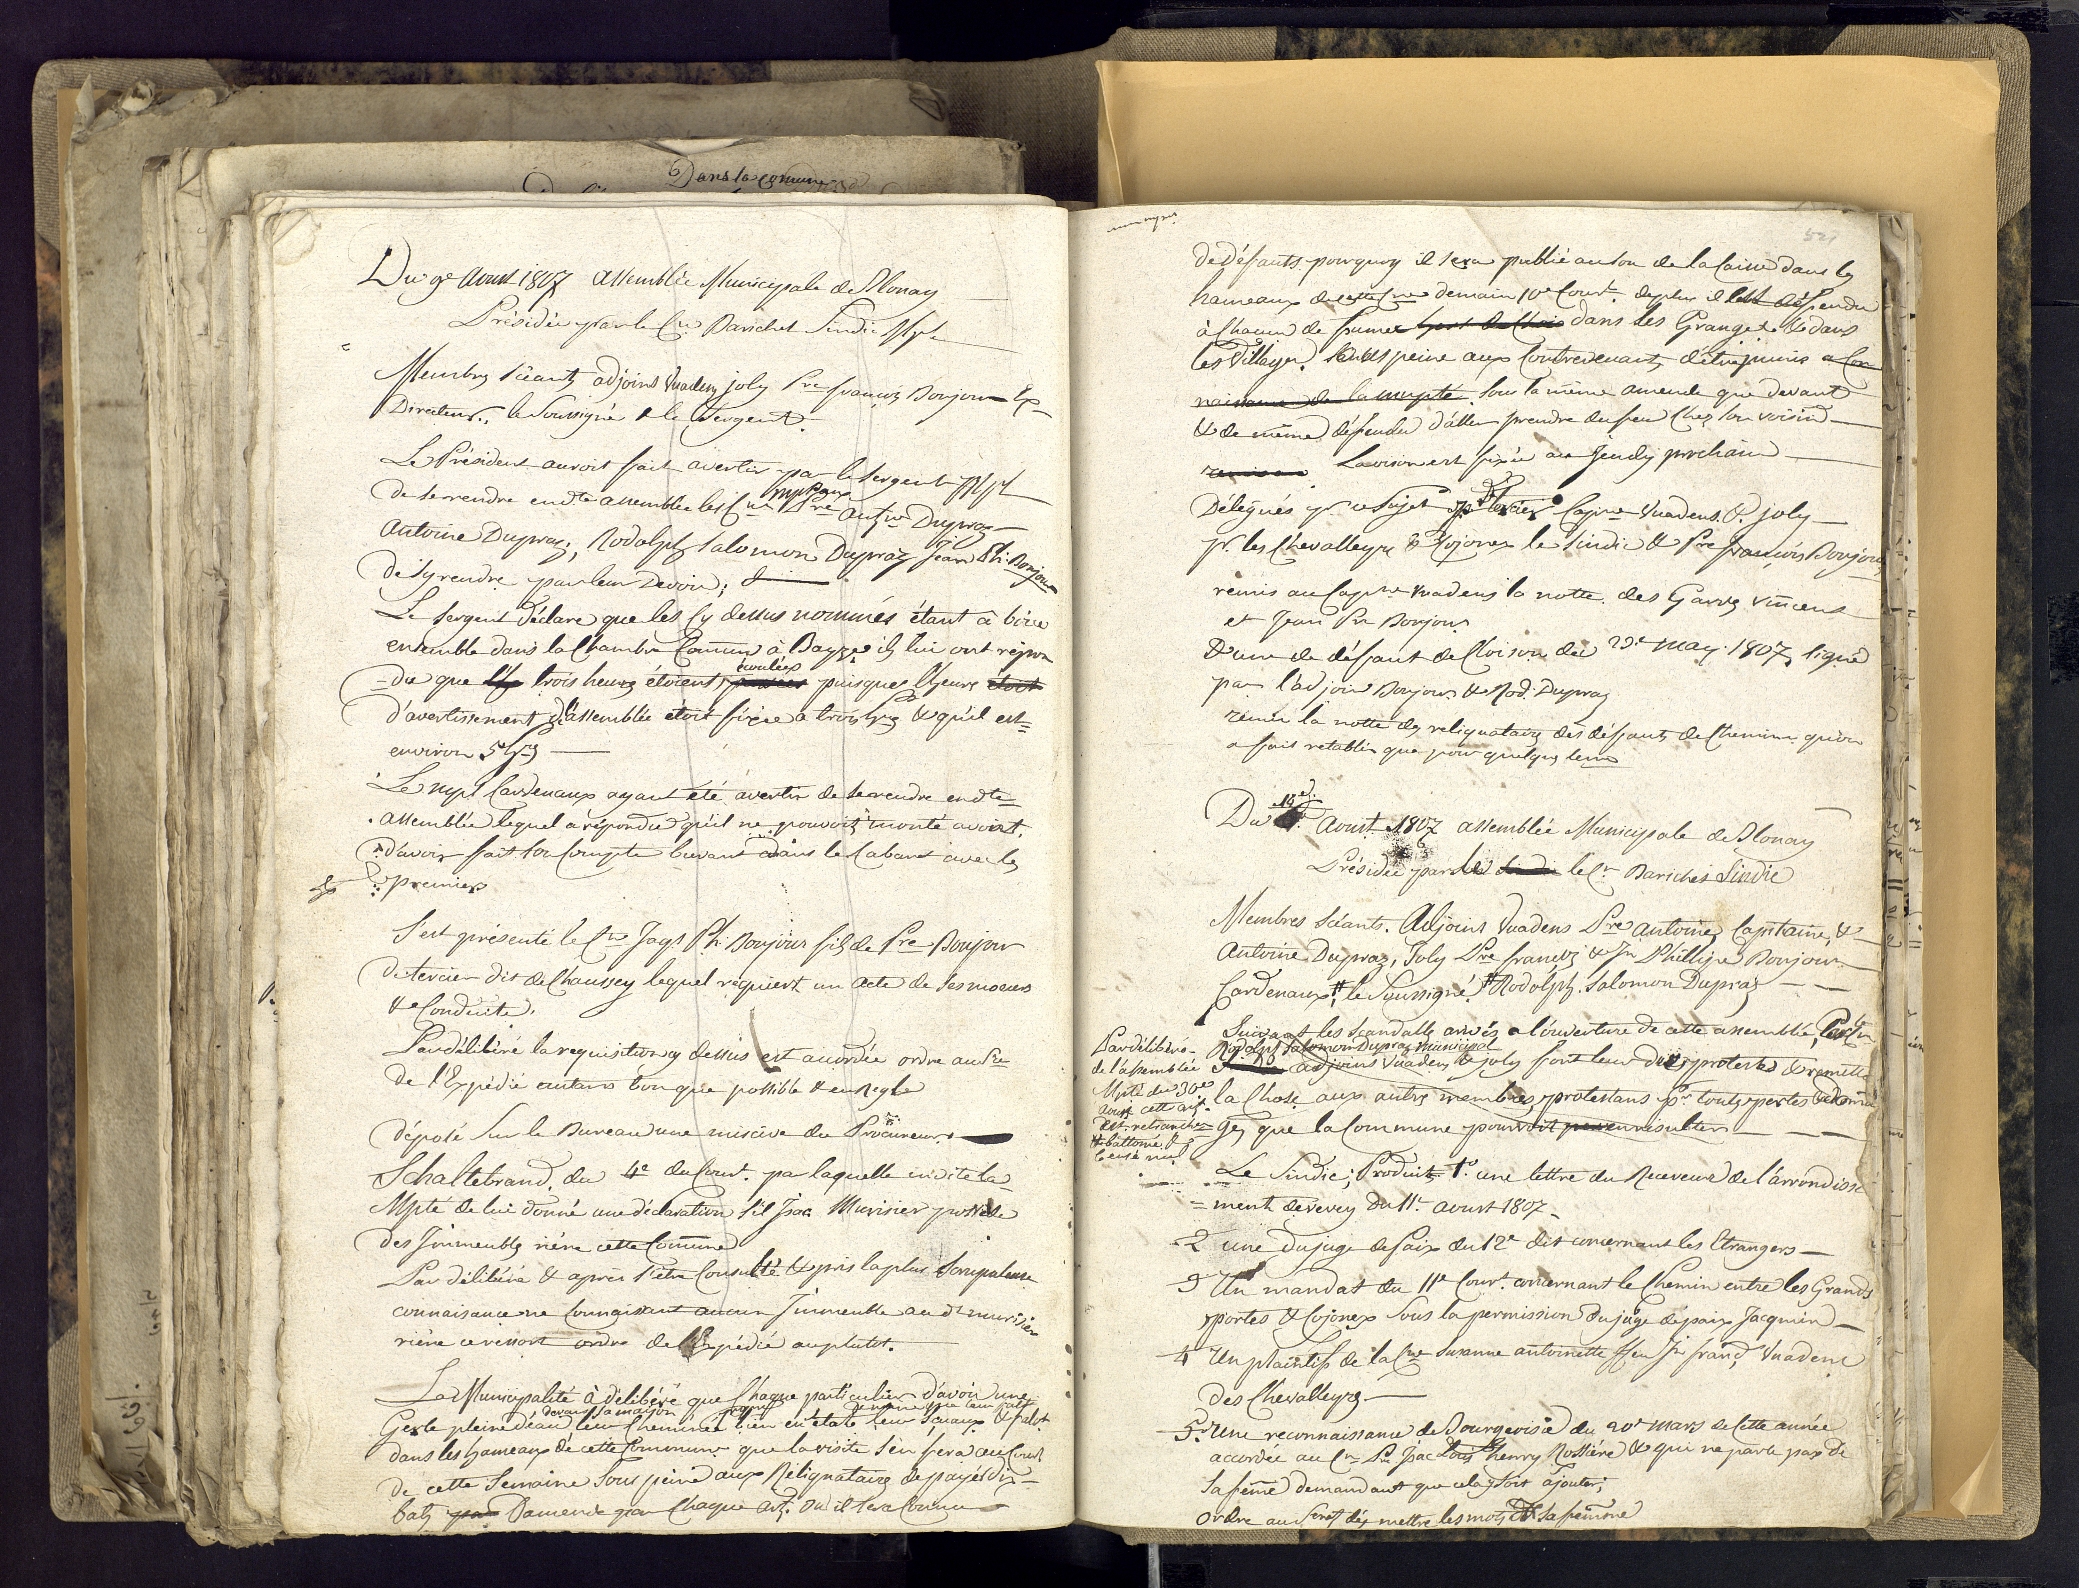 Dans la Comune
Du 9e Aoust 1807 assemblée Municipale de Blonay
Présidée par le Cn Barichet Sindic
Membres séants adjoins Vuadens joly Pre françois Bonjour Ex
Directeur, le Soussigné & le Sergent.
Le Président auroit fait avertir par le Sergent
de se rendre en dte assemblée les Cns mpaux Pre Antne Dupraz
Antoine Dupraz, Rodolph Salomon Dupraz Jean Ph: Bonjour
de sy rendre par leur Devoir;
Le Sergent déclare que les Cy dessus nommés étant à boire
ensemble dans la Chambre Comune à Bayze ils lui ont répon
=du que les trois heures étoient écoulées passées puisque l'heure étoit
d'avertissement d'assemblée étoit fixée à trois hres & qu'il est
environ 5 hres
Le mpl Cardenaux ayant été avertir de se rendre en dte
assemblée lequel a répondu qu'il ne pouvoit monté avant
d'avoir fait son Compte buvant dans le Cabaret avec les
premiers
S'est présenté le Cne Jaqs Ph: Bonjour fils de Pre Bonjour
de tercier dit de Chaussey lequel requiert un acte de ses moeurs
& Conduite.
Par délibéré la requisition cy dessus est acordée ordre au Sre
de l'Expédié autans bon que possible & en Regle
déposé sur le Bureau une missive du Procureur
Schaltebrand, du 4e du Court. par laquelle invite la
Mpté de lui donné une déclaration s'il Isac Murisier possède
des Immeubles rière cette Commune
Par délibéré & après s'être Consulté & pris la plus Scrupuleuse
connaisance ne Connaissant aucun Immeuble au dt murisier
rière ce ressort ordre de l'Expédié au plutot.
La Municipalité à délibéré que Chaque particulier d'avoir une
devant sa maison
Gerle pleine d'eau leur Cheminée bien en état leur Sceaux & falot
dans les hameaux de cette Commune que la visite s'en fera au Court
de cette Semaine sous peine aux Réliquataires de payér dix
batz par d'amende par Chaque art. où il sera Connu
521
de défauts. pourquoy il sera publié au son de la Caisse dans les
hameaux de cette Cne demain 10e Court. de plus il est défendu
à Chacun de fumer hors de Chez dans les Granges & dans
les Villages. Sous peine aux Contrevenants d'être punis a Con
naissance de la mupté. Sous la même amende que devant
& de même défendu d'aller prendre du feu Chez son voisin
La vision est fixée au Jeudy prochain
Délégués pr ce Sujet pr tercier Capne Vuadens. P. joly
pr. les Chevalleyres & Cojonex le Sindic & Pre françois Bonjour
remis au Capne Vuadens la notte des Gardes Vincent
et Jean Pre Bonjour
& une de défaut de Cloison du 23e may 1807, signé
par l'adjoin Bonjour & Rod. Dupraz
remis la notte des reliquataires des défauts de Chemins qu'on
a fait retablir que pour quelques tems
Du 14e. Aoust 1807 assemblée Municipale de Blonay
Présidée par le Cn Barichet Sindic
Membres Séants. Adjoint Vuadens Pre Antoine Capitaine, &
Antoine Dupraz, Joly Pre francois & Jn Phillipe Bonjour
Cardenaux # le Soussigné. # Rodolph. Salomon Dupraz
Suivant les scandalle arivés a l'ouverture de cette assemblée,
Rodolph Salomon Dupraz municipal
adjoins Vuadens & joly font leur dires protestes & remette
la Chose aux autres membres, protestans pr toutes pertes & doma
ges que la Commune pourroit en resulter
Par délibéré
de l'assemblée
Mpté du 30e
aoust cette art.
est retranché
& battonné
Le Sindic; Produit 1º. une lettre du Receveur de l'arrondisse
=ment de Vevey du 11e. aoust 1807
2 une du juge de Paix du 12e dit concernant les Etrangers
3 Un mandat du 11e Court. concernant le Chemin entre les Grands
portes & Cojonex sous la permission du juge de paix Jacquier
4 Un plaintif de la Cne Susanne antoinette ffeu Jn franç. Vuadens
des Chevalleyres
5. Une reconnaissance de Bourgeoisie du 20e mars de Cette année
accordée au Cn Pre Isac Louis henry Rossiére & qui ne parle pas de
sa feme demandant que cela y soit ajouter;
ordre au Secret d'y mettre les mots & sa femme